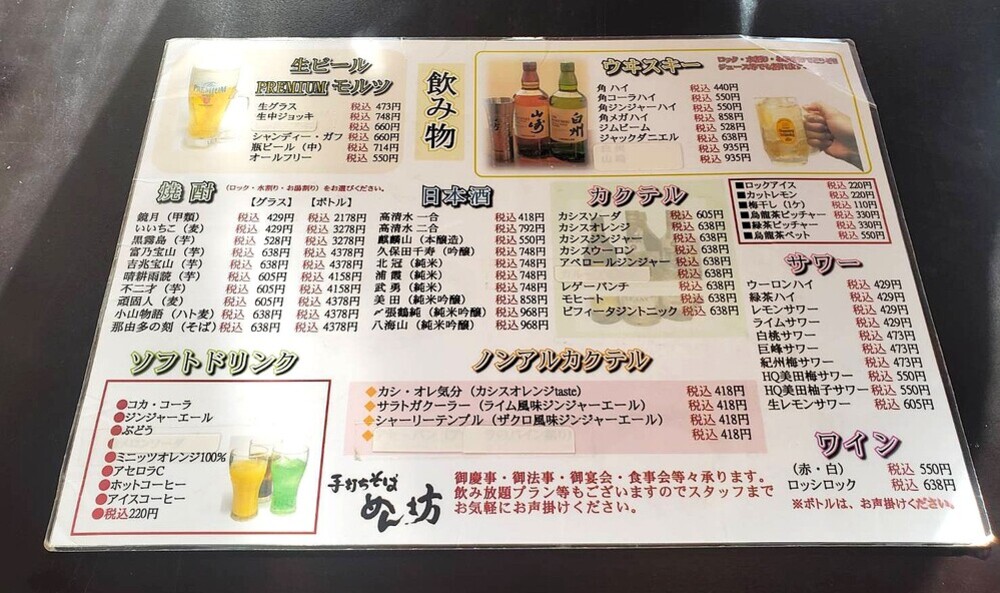 生ビール
PREMIUM モルツ
生グラス 税込 473円
生中ジョッキ 税込 748円
税込 660円
シャンディー・ガフ 税込 660円
瓶ビール（中） 税込 714円
オールフリー 税込 550円
飲み物
ウヰスキー
角 ハイ 税込 440円
角コーラハイ 税込 550円
角ジンジャーハイ 税込 550円
角メガハイ 税込 858円
ジムビーム 税込 528円
ジャックダニエル 税込 638円
税込 935円
税込 935円
山崎
白州
焼酎 （ロック・水割り・お湯割り）をお選びください。
【グラス】 【ボトル】
鏡月（甲類） 税込 429円 税込 2178円
いいちこ（麦） 税込 429円 税込 3278円
黒霧島（芋） 税込 528円 税込 3278円
富乃宝山（芋） 税込 638円 税込 4378円
吉兆宝山（芋） 税込 638円 税込 4378円
晴耕雨読（芋） 税込 605円 税込 4158円
不二才（芋） 税込 605円 税込 4158円
頑固人（麦） 税込 605円 税込 4378円
小山物語（ハト麦） 税込 638円 税込 4378円
那由多の刻（そば） 税込 638円 税込 4378円
日本酒
高清水 一合 税込 418円
高清水 二合 税込 792円
麒麟山（本醸造） 税込 550円
久保田千寿（吟醸） 税込 748円
北冠（純米） 税込 748円
浦霞（純米） 税込 748円
武勇（純米） 税込 748円
美田（純米吟醸） 税込 858円
〆張鶴純（純米吟醸） 税込 968円
八海山（純米吟醸） 税込 968円
カクテル
カシスソーダ 税込 605円
カシスオレンジ 税込 638円
カシスジンジャー 税込 638円
カシスウーロン 税込 638円
アペロールジンジャー 税込 638円
税込 638円
レゲーパンチ 税込 638円
モヒート 税込 638円
ビフィータジントニック 税込 638円
■ロックアイス 税込 220円
■カットレモン 税込 220円
■梅干し（1ケ） 税込 110円
■烏龍茶ピッチャー 税込 330円
■緑茶ピッチャー 税込 330円
■烏龍茶ペット 税込 550円
サワー
ウーロンハイ 税込 429円
緑茶ハイ 税込 429円
レモンサワー 税込 429円
ライムサワー 税込 429円
白桃サワー 税込 473円
巨峰サワー 税込 473円
紀州梅サワー 税込 473円
HQ美田梅サワー 税込 550円
HQ美田柚子サワー 税込 550円
生レモンサワー 税込 605円
ソフトドリンク
●コカ・コーラ
●ジンジャーエール
●ぶどう
●ミニッツオレンジ100%
●アセロラC
●ホットコーヒー
●アイスコーヒー
●税込220円
ノンアルカクテル
◆カシ・オレ気分（カシスオレンジtaste） 税込 418円
◆サラトガクーラー（ライム風味ジンジャーエール） 税込 418円
◆シャーリーテンプル（ザクロ風味ジンジャーエール） 税込 418円
◆ 税込 418円
ワイン
（赤・白） 税込 550円
ロッシロック 税込 638円
※ボトルは、お声掛けください。
手打ちそば
めん坊
御慶事・御法事・御宴会・食事会等々承ります。
飲み放題プラン等もございますのでスタッフまで
お気軽にお声掛けください。